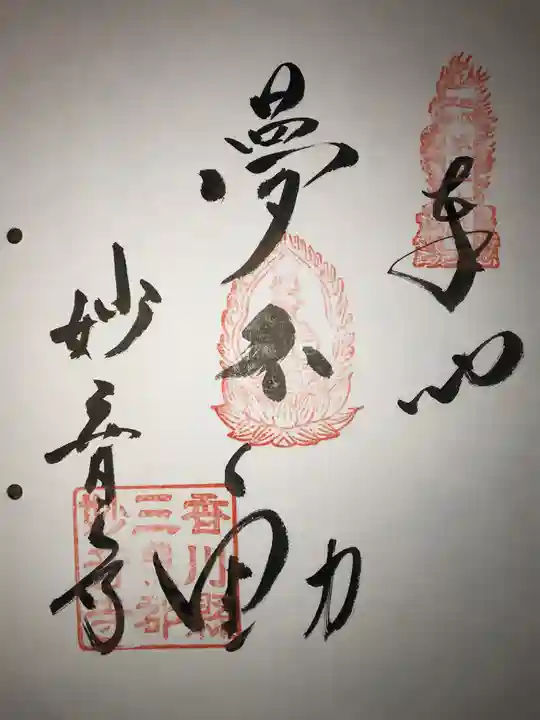 奉
夢不動
妙音寺
香川縣
三豊郡
妙音寺